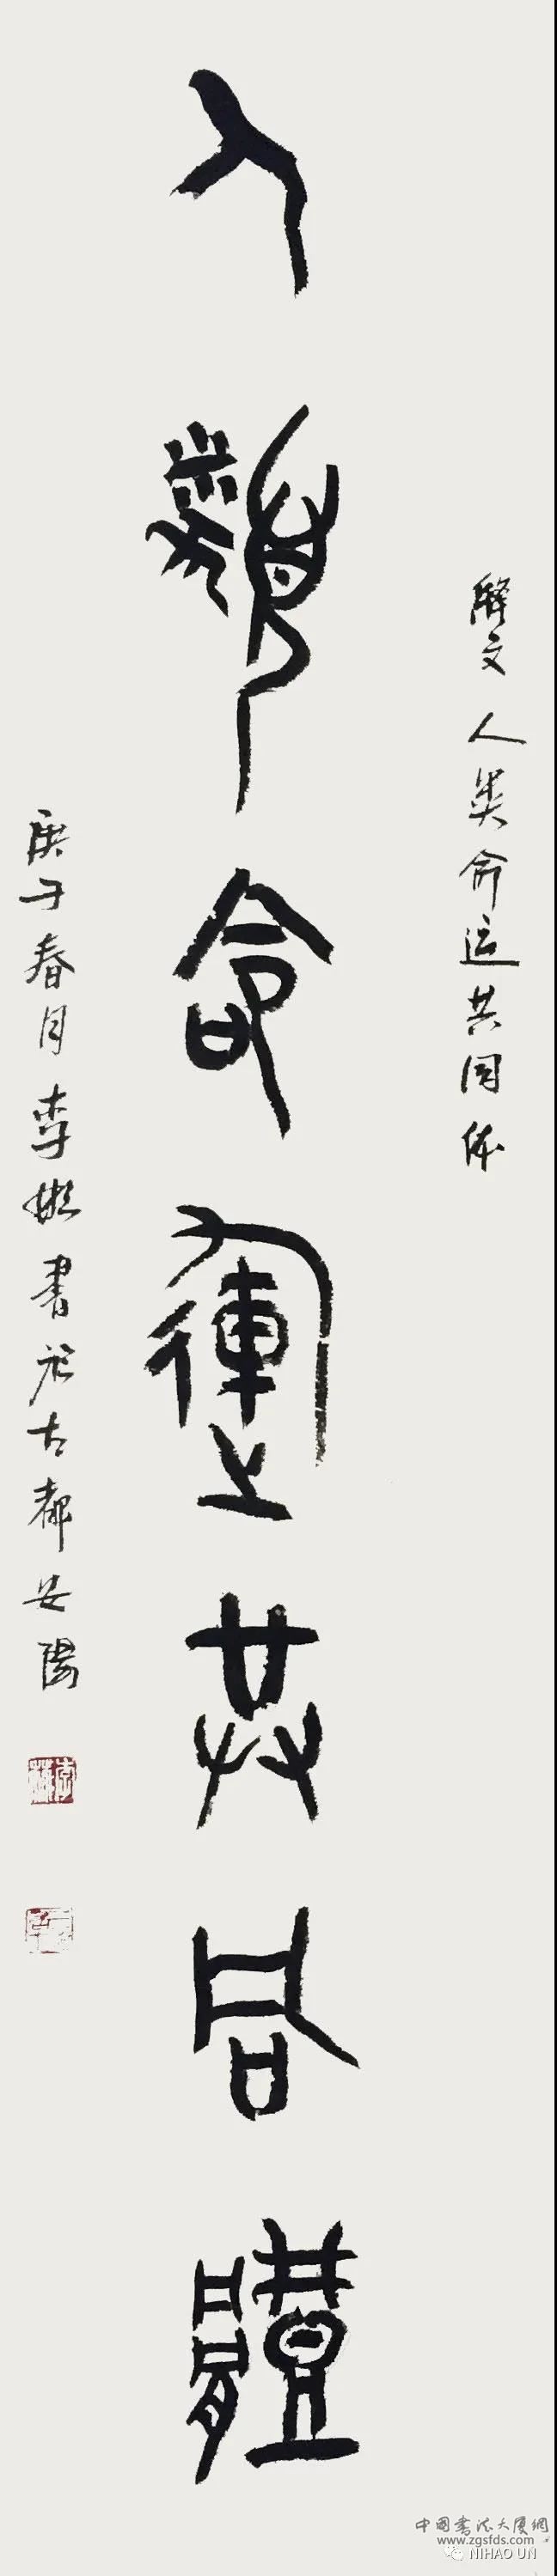 釋文 人类命运共同体
人類命運共同體
庚子春月李書於古都安陽
中國書法大厦網
www.zgsfds.com
NIHAO UN